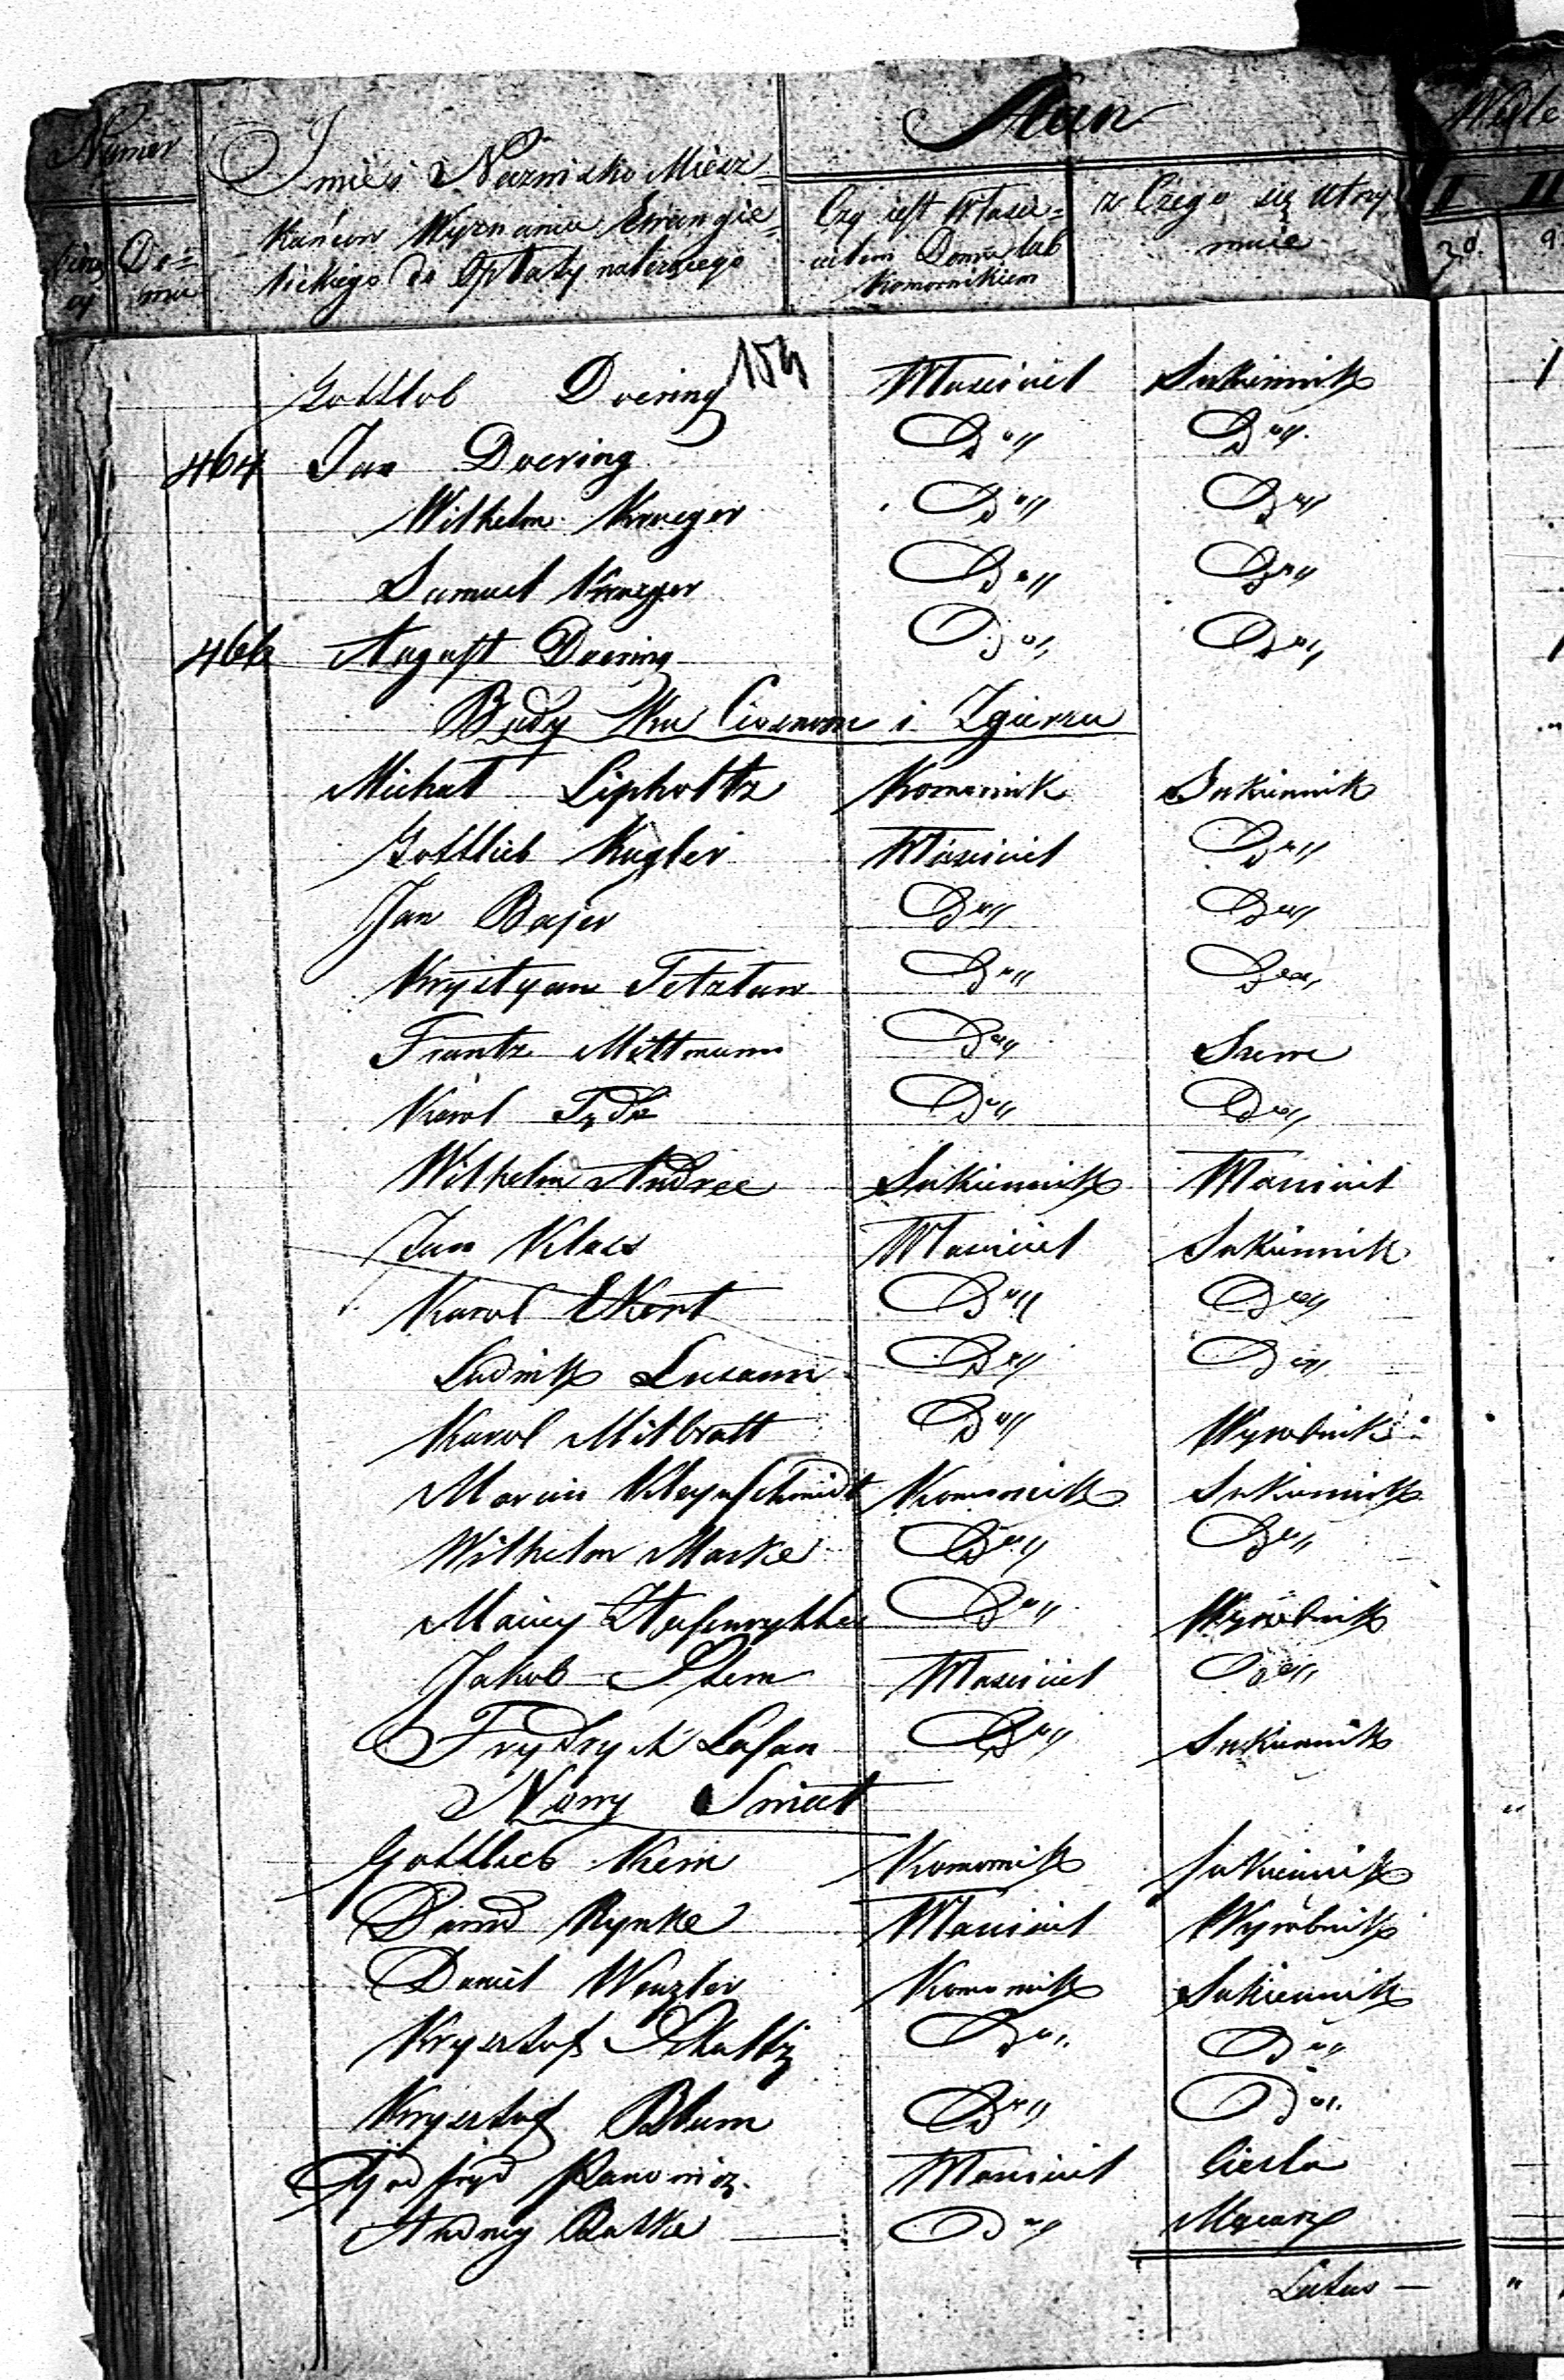 Numer
Imie i Nazwisko Miesz=
kańcow Wyznania Ewangie=
lickiego do Opłaty należącego
Stan
Czy iest Właści=
cielem Domu lub
Komornikiem
z Czego się utrzy
muie
Wiele
Do=
mu
I II
zł. g
Gottlob Doering 154 Właściciel Sukiennik 1
464 Jan Doering D° D°
Wilhelm Krueger D° D°
Samuel Krueger D° D°
466 August Doering D° D°
Budy Ku Ciosnom i Zgierzu
Michał Lipholtz Komornik Sukiennik
Gottlieb Kugler Właściciel D°
Jan Bajer D° D°
Krystyan Tetzlaw D° D°
Frantz Mittmann D° Szewc
Karol D° D°
Wilhelm Andree Sukiennik Właściciel
Jan Klaes Właściciel Sukiennik
Karol Ekert D° D°
Ludwik D° D°
Karol Milbratt D° Wyrobnik
Marcin Kleynschmidt Komornik Sukiennik
Wilhelm Maske D° D°
Maciey D° Wyrobnik
Jakob Właściciel D°
Frydrych Lasan D° Sukiennik
Nowy Swiat
Gottlieb Kern Komornik Sukiennik
Dawid Rynke Właściciel Wyrobnik
Daniel Wenzler Komornik Sukiennik
Krysztof Schultz D° D°
Krysztof Blum D° D°
Godfryd Właściciel Cieśla
Andrzey Ratke D° Mącarz
Latus —